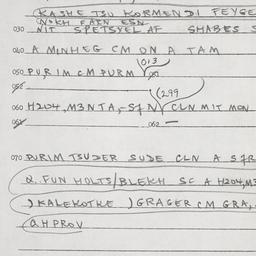 KASHE TSU KORMENDI FEYGE
NOKH EATN ESN
030 NIT SPETSYEL AF SHABES S
040 A MINHEG CM ON A TAM
(013
050 PURIM CM PURM
052
(299
060 H204, M3NTA,-S1 N CLN MIT MON
062 —
070 PURIM TSUDER SUDE CLN A S1R
Q. FUN HOLTS/BLEKH SC A H204,M3
) KALEKOTKE ) GRAGER CM GRA,
QHPROV